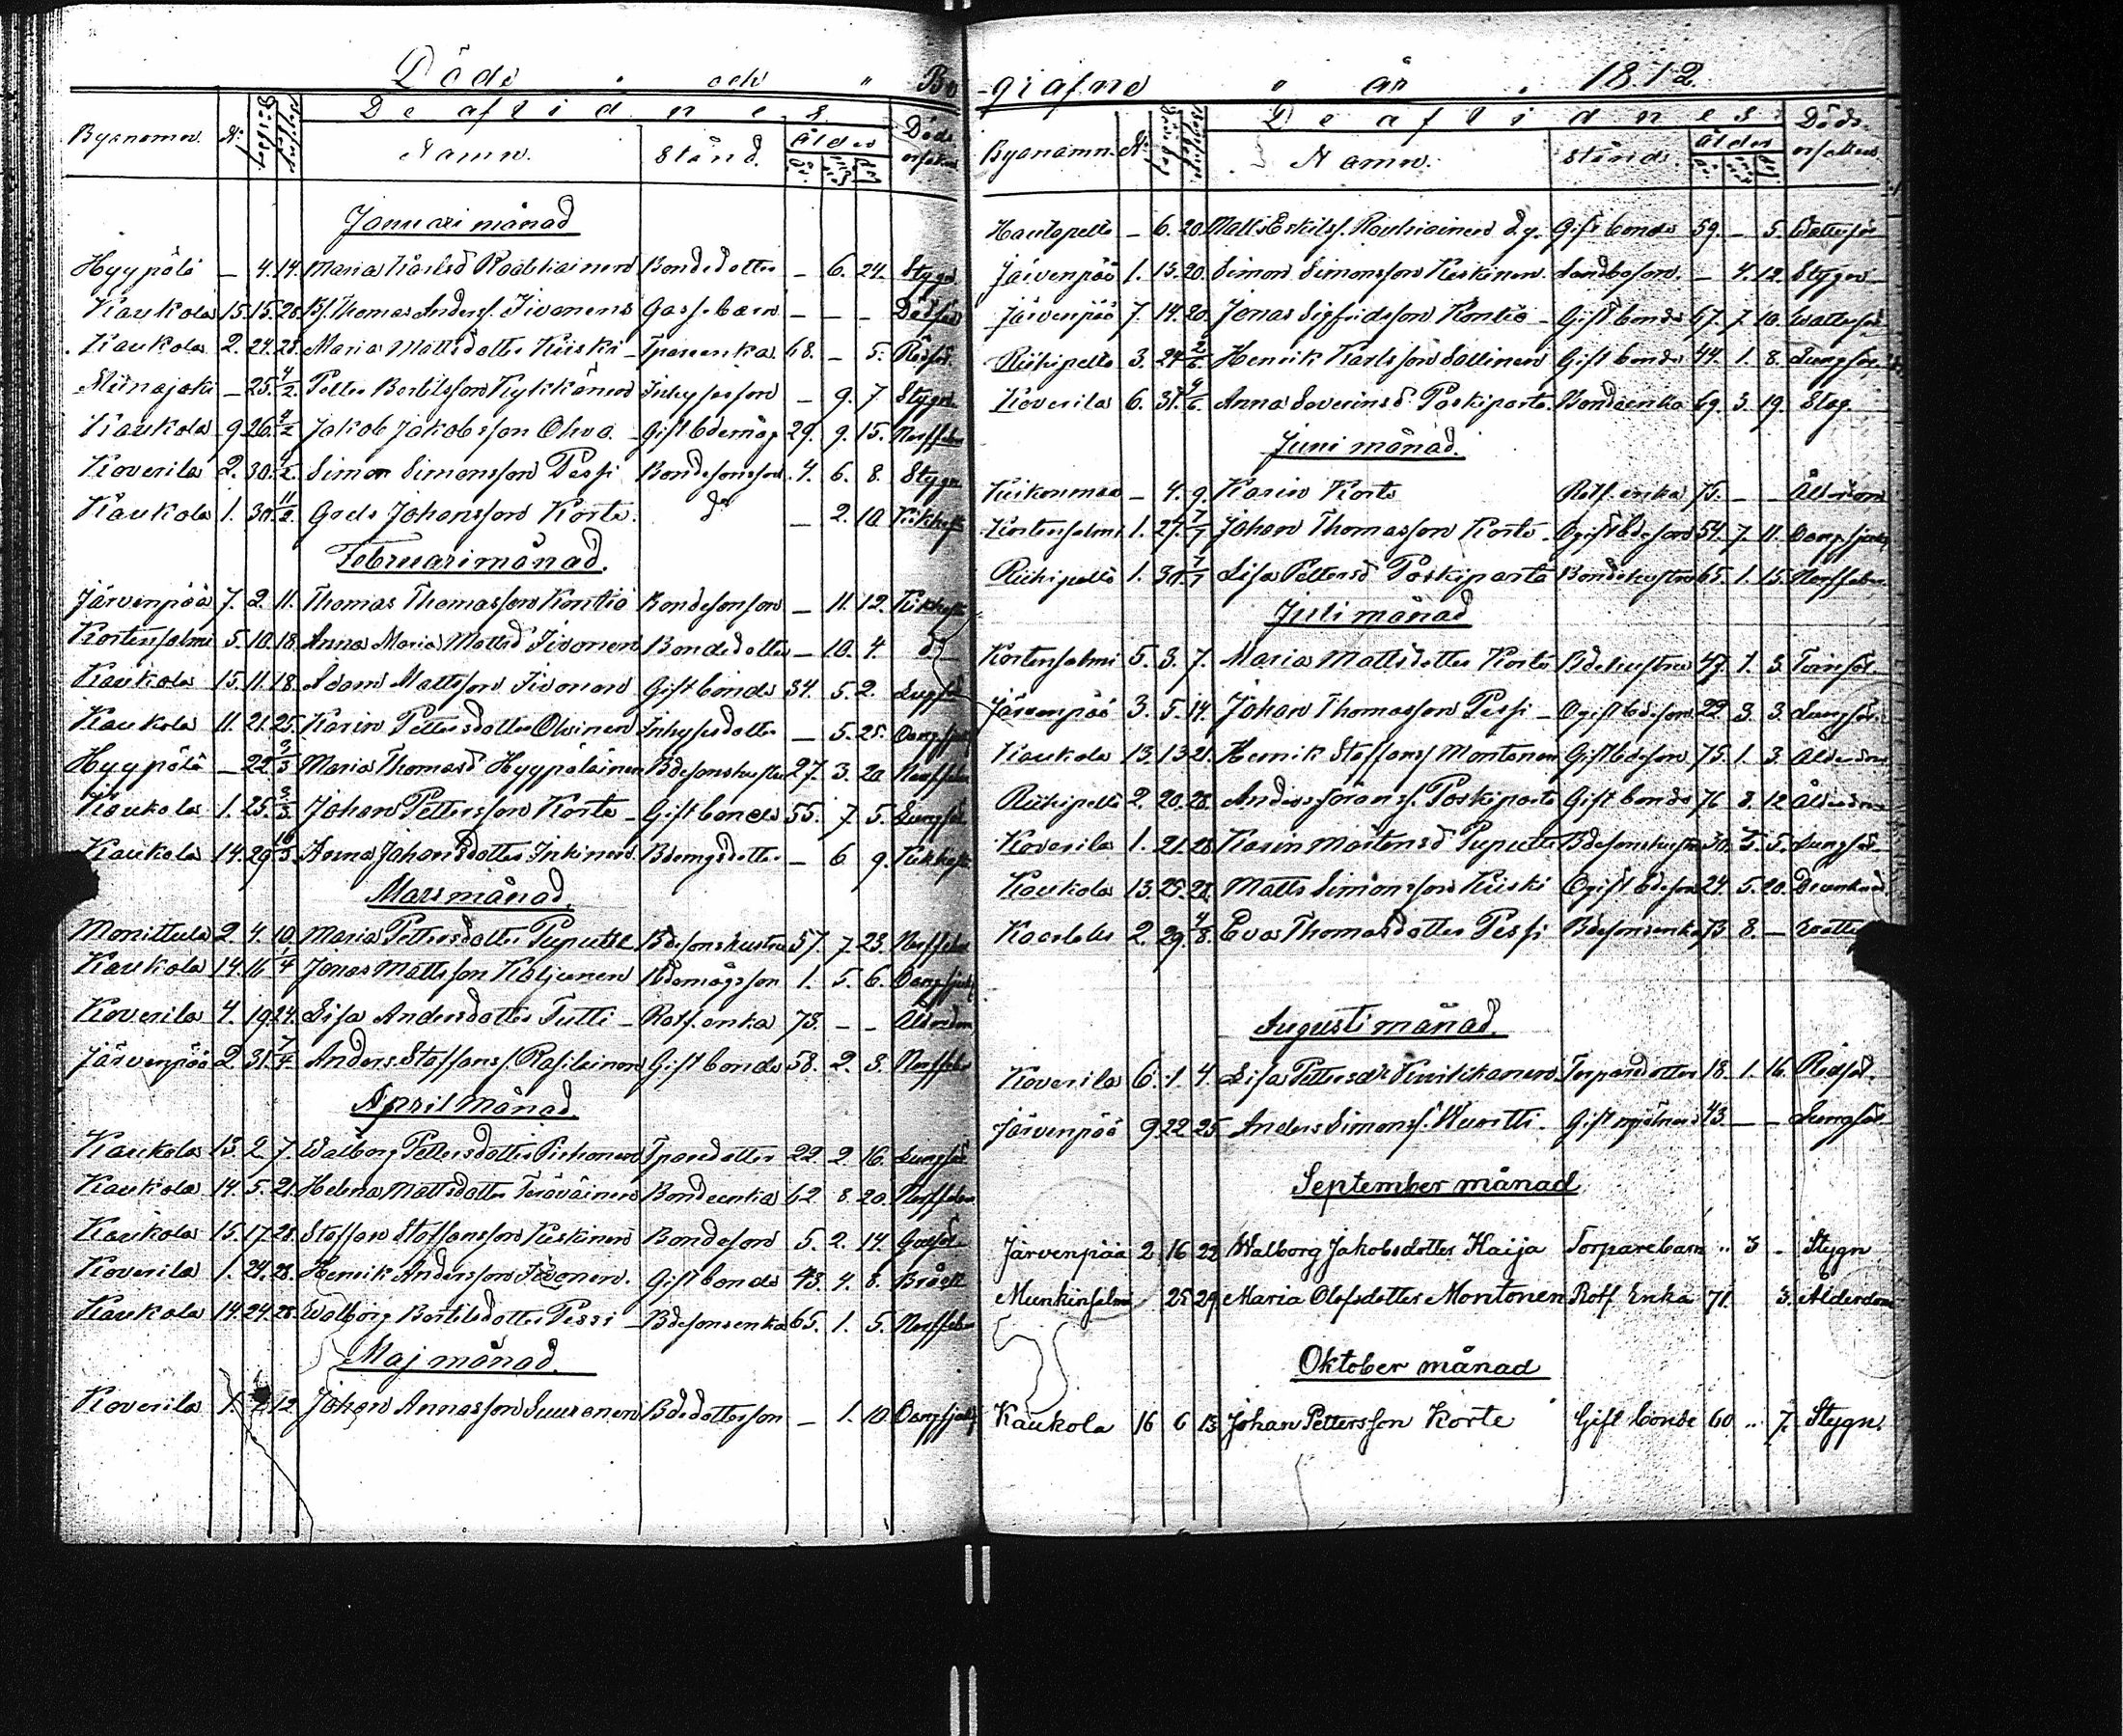 Döde och Be
De aflidnes
Byanamn. № Namn. Stånd. Ålder Döds orsaken
Januari månad
Hyypölä – 4. 14. Maria Karlsd Raatikainen Bondedotter – 6. 24. Stygn
Kaukola 15. 15. 20. Thomas Anders. Sivonens Gossebarn – – – Dödfödd
Kaukola 2. 24. 28. Maria Mattsdotter Kiiski Tparenka 68. – 5. Rödsot.
Miinajoki – 25. 4/2 Petter Bertilsson Kykkänen Inhysesson – 9. 7 Stygn
Kaukola 9 26. 4/2 Jakob Jakobsson Ohva Gift bdemåg 29. 9. 15. Nerffeber
Koverila 2. 30. 4/2. Simon Simonsson Pessi Bondesonson 4. 6. 8. Stygn
Kaukola 1. 30. 11/2. Gabr Johansson Korte. d:o – 2. 10 Kikhosta
Februari månad.
Järvenpää 7. 2. 11. Thomas Thomasson Kontio Bondesonson – 11. 12. Kikhosta
Kortensalmi 5. 10. 18. Anna Maria Mattsd Sivonen Bondedotter – 10. 4. d:o
Kaukola 15. 11. 18. Adam Mattsson Sivonen Gift bonde 34. 5. 2. Lungsot
Kaukola 11. 21. 25. Karin Pettersdotter Ohvinen Inhysedotter – 5. 25.
Hyypölä – 22. 3/3 Maria Thomasd Hyypöläinen Bdesonshustru 27. 3. 20 Nerffeber
Kaukola 1. 25. 3/3 Johan Pettersson Korte Gift bonde 55. 7. 5. Lungsot
Kaukola 14. 29. 10/3 Anna Johansdotter Inkinen Bdemgsdotter – 6 9. Kikhosta
Mars månad.
Monittula 2. 4. 10. Maria Pettersdotter Puputti Bdesonshustru 57. 7. 23. Nerffeber
Kaukola 14. 16 1/4 Jonas Mattsson Kaljunen Bdemågsson 1. 5. 6.
Koverila 4. 19 24. Lisa Andersdotter Tutti Rotf. enka 73. – – Ålderdom
Järvenpää 2 31. 7/4. Anders Staffans. Rasilainen Gift bonde 58. 2. 3. Nerffeber
April månad.
Kaukola 13. 2 7. Walborg Pettersdotter Pirhonen Tparedotter 22. 2. 16. Lungsot
Kaukola 14. 5. 21. Helena Mattsdotter Terävainen Bondeenka 62 8. 20. Nerffeber
Kaukola 15. 17. 28. Staffan Staffansson Kiiskinen Bondeson 5. 2. 14.
Koverila 1. 24. 28. Henrik Andersson Sivonen. Gift bonde 43. 4. 8. Bråck
Kaukola 14. 24. 28. Walborg Bertilsdotter Pessi Bdesonsenka 65. 1. 5. Nerffeber
Maj månad.
Koverila 1. 12. Johan Annasson Suuronen Bdedotterson – 1. 10
grafne år 1812.
De aflidnes
Byanamn. № Namn. Stånd. Ålder Döds orsaken
Hautapelto – 6. 20. Matts Eskilss. Rauhiainen d.y. Gift bonde 59. – 5. Wattusot
Järvenpää 1. 15. 20. Simon Simonsson Kiiskinen. Landboson. – 4. 12. Stygn
Järvenpää 7. 14. 20. Jonas Sigfridsson Kontio Gift bonde 67. 7. 10. Wattusot
Riihipelto 3. 24. 2/6. Henrik Karlsson Sallinen Gift bonde 44. 1. 8. Lungsot.
Koverila 6. 31. 4/6. Anna Severinsd. Paskiparta. Bondeenka 69. 3. 19. Slag.
Juni månad.
Kiikonmaa – 4. 9. Karin Korte Rotf. enka 75. – – Ålderdom
Kortensalmi 1. 27. 7/7 Johan Thomasson Korte. Ogift bdeson 54. 7. 11.
Riihipelto 1. 30. 7/7 Lisa Pettersd Paskiparta Bondehustru 65. 1. 15. Nerffeber
Juli månad
Kortensalmi 5. 3. 7. Maria Mattsdotter Korte Bdehustru 47. 1. 3.
Järvenpää 3. 5. 14. Johan Thomasson Pessi Ogift bdeson 22. 3. 3. Lungsot
Kaukola 13. 13 21. Henrik Staffans. Montonen Gift bdeson 75. 1. 3. Ålderdom
Riihipelto 2. 20. 28. Anders Görans. Paskiparta Gift bonde 76 8. 12 Ålderdom
Koverila 1. 21. 28 Karin Mårtensd Puputti Bdesonshustru 30. 5. 5. Lungsot
Kaukola 13. 25. 28. Matts Simonsson Kiiski Ogift bdeson 24. 5. 20. Drunknad
Kaukola 2. 29. 4/8. Eva Thomasdotter Pessi Bdesonsenka 73 8. –
Augusti månad.
Koverila 6. 1. 4. Lisa Pettersdr Kuikkanen. Torparedotter 18. 1. 16. Rödsot.
Järvenpää 9 22 25. Anders Simons. Wuotti. Gift mjölnare 43. – – Lungsot
September månad
Järvenpää 2 16 22 Walborg Jakobsdotter Kaija Torparebarn " 3 – Stygn
Munkinsalmi 25 29 Maria Olofsdotter Montonen Rotf Enka 71. 3. Ålderdom
Oktober månad
Kaukola 16 6 13 Johan Pettersson Korte Gift bonde 60. " 7. Stygn.